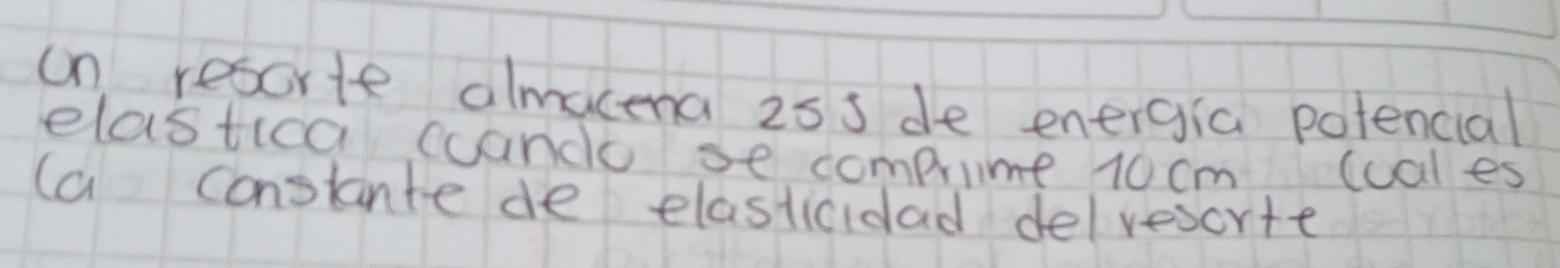 un resorte almacena 25J de energía potencial
elastica cuando se comprime 10 cm cual es
la constante de elasticidad del resorte